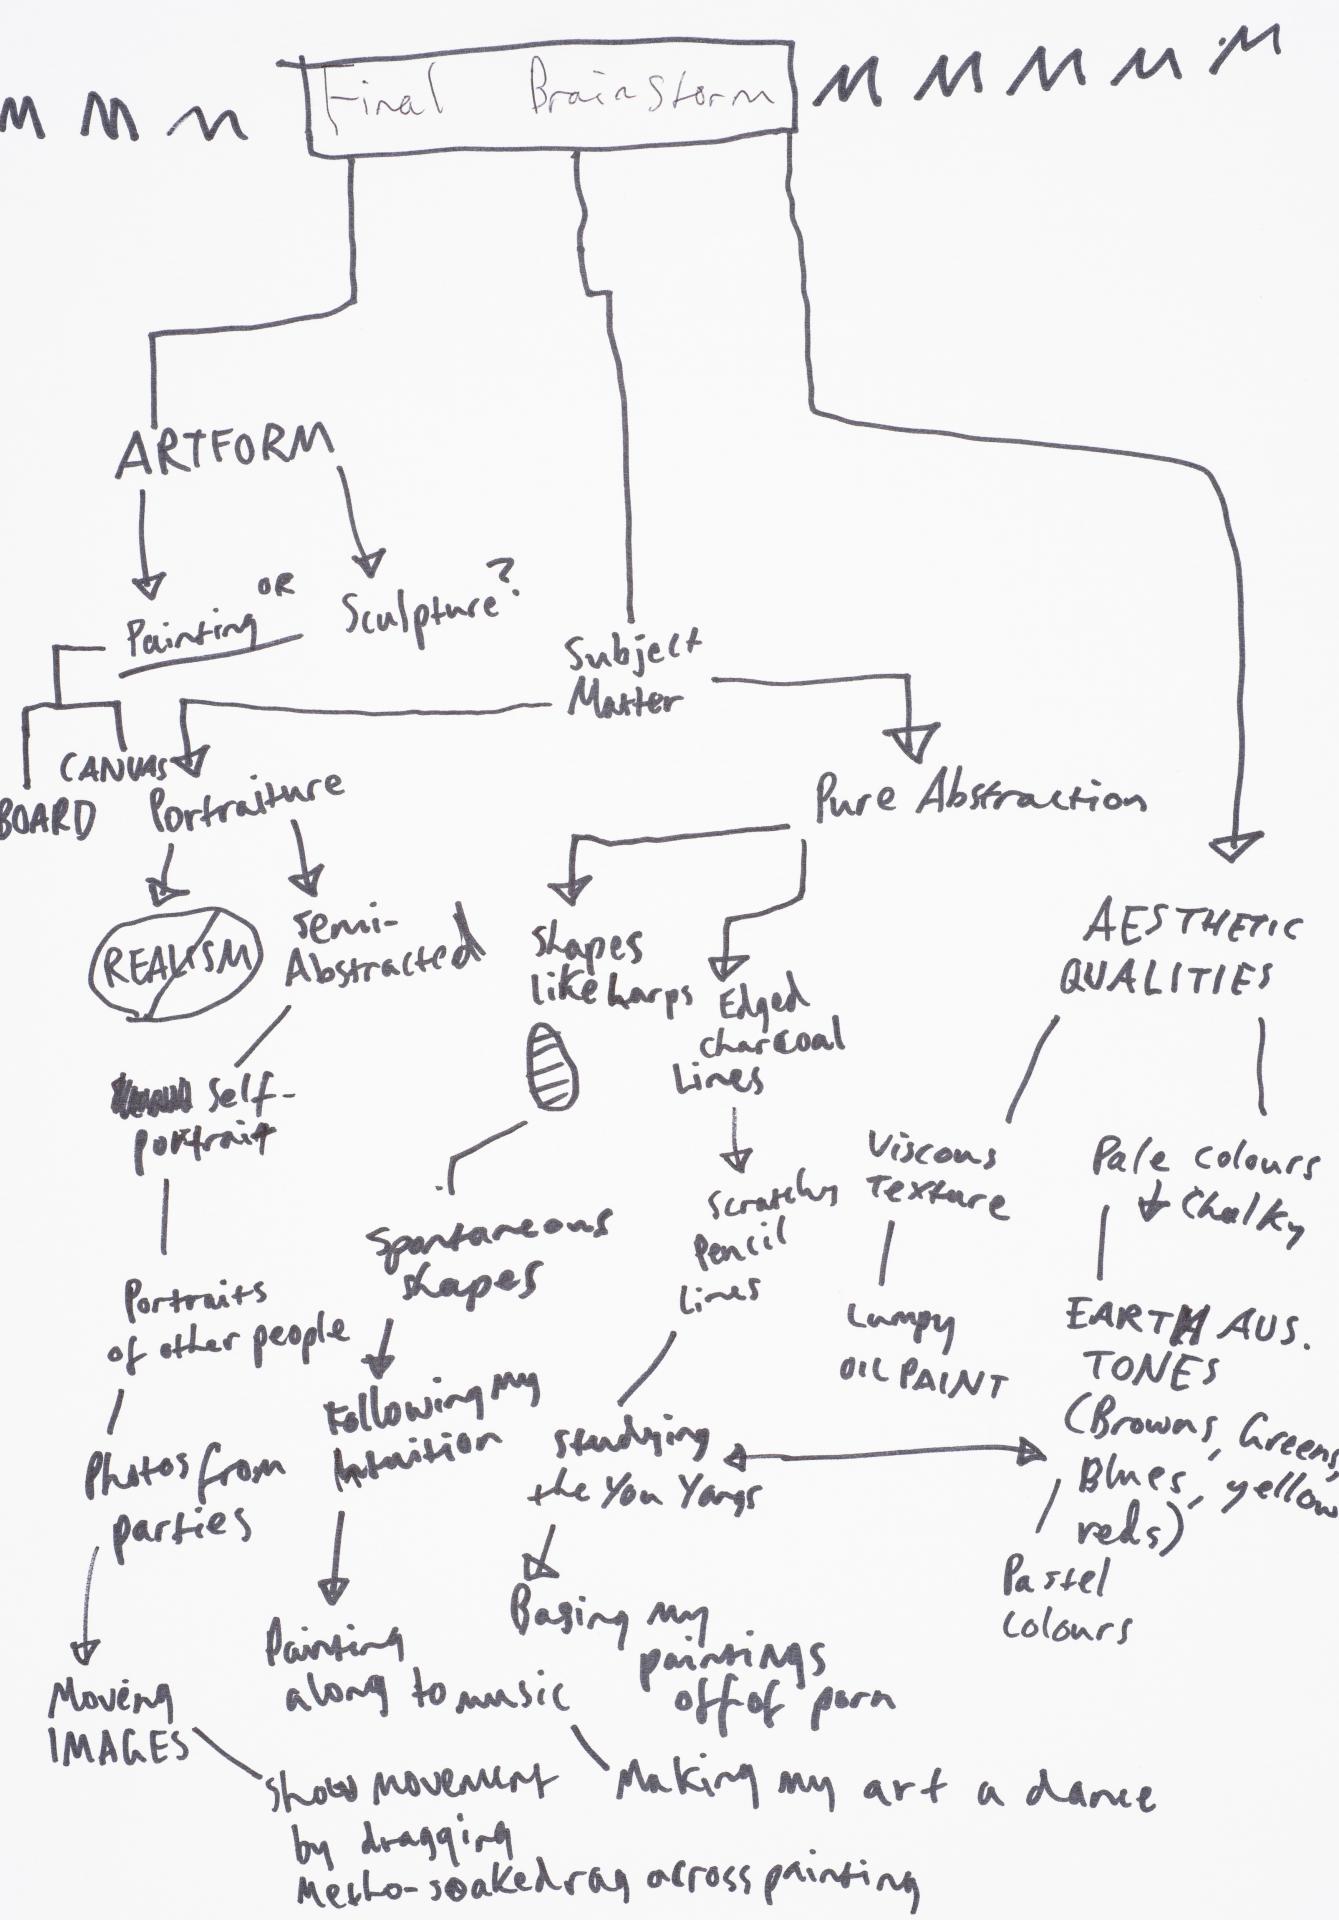 Final Brainstorm
ARTFORM
Painting OR Sculpture?
CANVAS
BOARD
Subject
Matter
Portraiture
REALISM
Semi-
Abstracted
Self-
portrait
Portraits
of other people
Photos from
parties
Moving
IMAGES
Show movement
by dragging
Metho-soaked rag across painting
Pure Abstraction
Shapes
like harps
Spontaneous
shapes
Following my
Intuition
Painting
along to music
Making my art a dance
Edged
charcoal
Lines
Scratchy
Pencil
Lines
Studying
the You Yangs
Basing my
paintings
off of porn
AESTHETIC
QUALITIES
Viscous
Texture
Lumpy
OIL PAINT
Pale colours
Chalky
EARTH AUS.
TONES
(Browns, Greens,
Blues, yellow
reds)
Pastel
colours